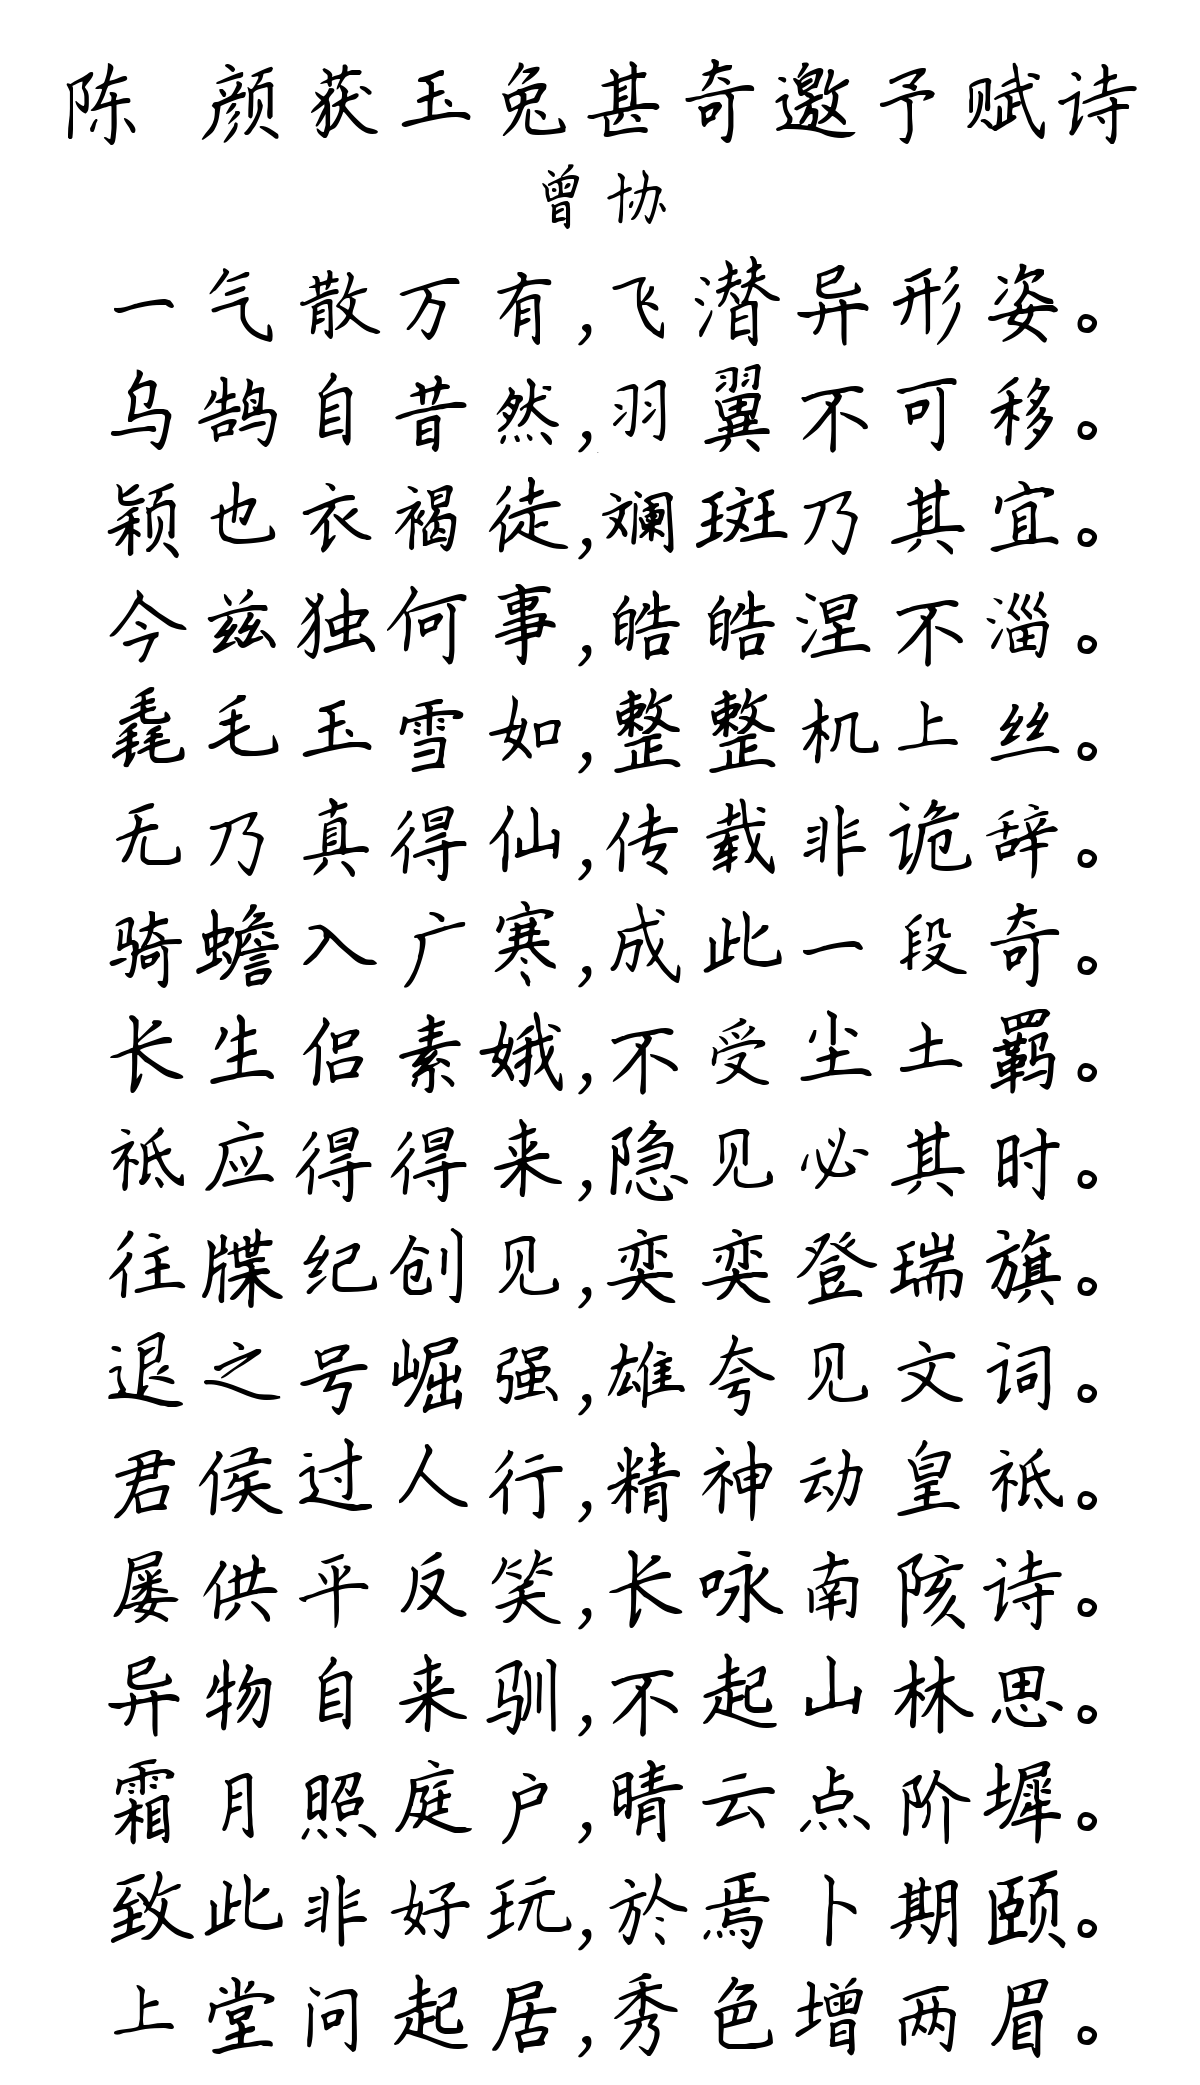 陈 颜获玉兔甚奇邀予赋诗
曾协
一气散万有,飞潜异形姿。
乌鹄自昔然,羽翼不可移。
颖也衣褐徒,斓斑乃其宜。
今兹独何事,皓皓涅不淄。
毳毛玉雪如,整整机上丝。
无乃真得仙,传载非诡辞。
骑蟾入广寒,成此一段奇。
长生侣素娥,不受尘土羁。
祗应得得来,隐见必其时。
往牒纪创见,奕奕登瑞旗。
退之号崛强,雄夸见文词。
君侯过人行,精神动皇祗。
屡供平反笑,长咏南陔诗。
异物自来驯,不起山林思。
霜月照庭户,晴云点阶墀。
致此非好玩,於焉卜期颐。
上堂问起居,秀色增两眉。